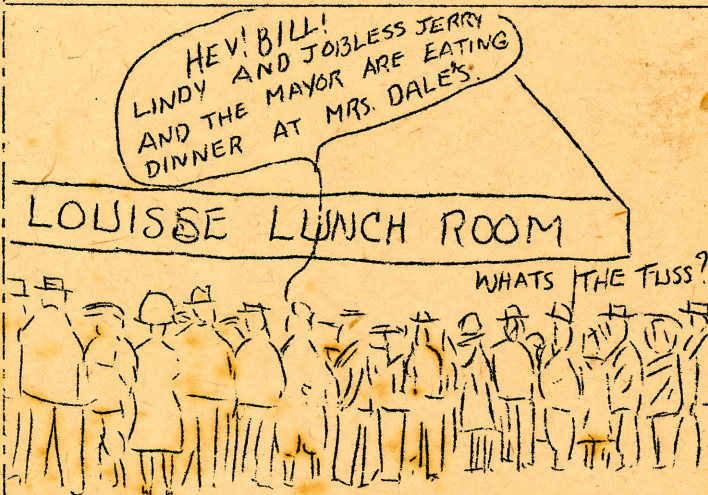 HEY! BILL!
LINDY AND JOBLESS JERRY
AND THE MAYOR ARE EATING
DINNER AT MRS. DALE'S.
LOUISSE LUNCH ROOM
WHATS THE FUSS?